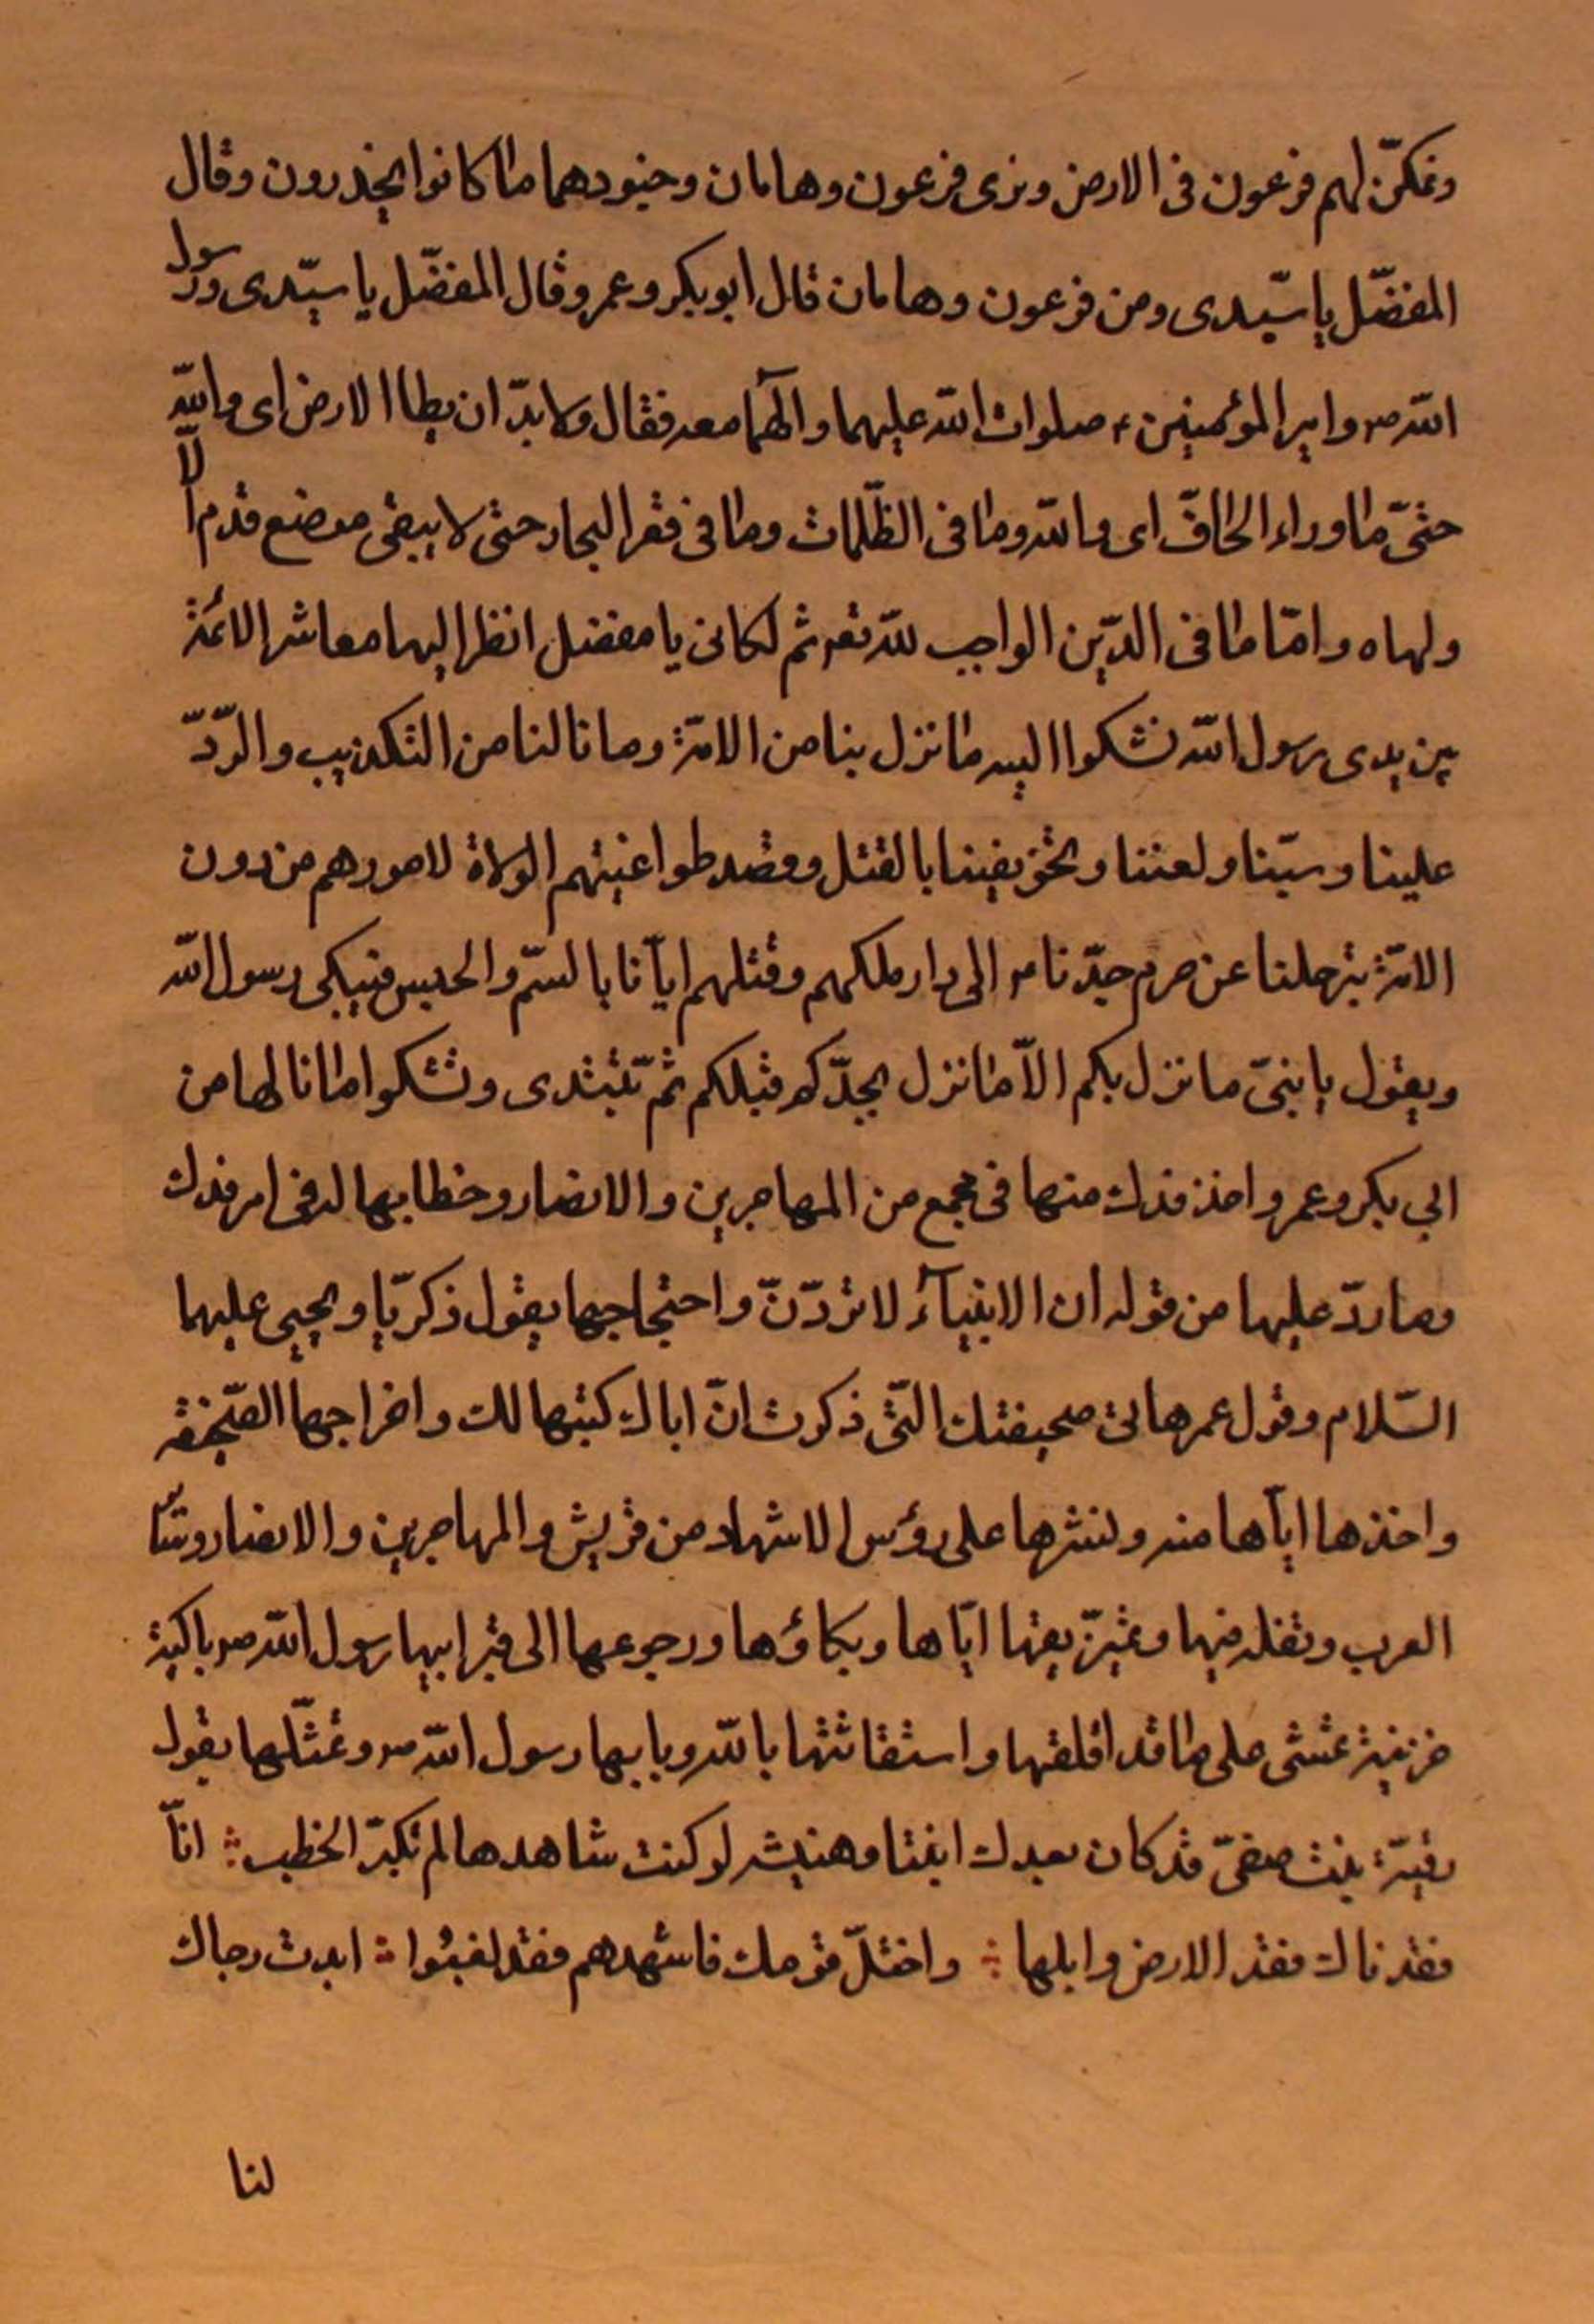 ونمكنّ لهم فرعون فى الارض ونرى فرعون وهامان وجنودهما ماكانوا يحذرون وقال
المفضّل يا سيّدى ومن فرعون وهامان قال ابو بكر وعمر وقال المفضّل يا سيّدى ورسول
الله ص وامير المؤمنين ع صلوات الله عليهما وآلهما معه فقال ولا بدّ ان يطاا الارض اى والله
حتّى ما وراء الحافّ اى والله وما فى الظّلمات وما فى قعر البحار حتى لا يبقى موضع قدم الّا
ولهاه وامّا ما فى الدّين الواجب لله تعه ثم لكانى يا مفضل انظر اليها معاشر الائمّة
بين يدى رسول الله نشكوا اليه ما نزل بنا من الامّة وما نالنا من التكذيب والرّدّ
علينا وسبّنا ولعننا وتخويفينا بالقتل وقصد طواغيتهم الولاة لامورهم من دون
الامّة بترحلنا عن حرم جدّنا ص الى دار ملكهم وقتلهم ايّآنا بالسّم والحبس فيبكى رسول الله
ويقول يا بنىّ ما نزل بكم الاّ ما نزل بجدّكم قبلكم ثم تبتدى وتشكوا ما نالها من
ابي بكر وعمر واخذ فدك منها فى مجمع من المهاجرين والانصار وخطابها له فى امر فدك
وما ردّ عليها من قوله ان الانبيآء لا تردّنّ واحتجاجها بقول ذكريّا ويحيى عليهما
السّلام وقول عمر هاتى صحيفتك التّى ذكرت انّ اباك كتبها لك واخراجها الصّحيفه
واخذها ايّآها منه ولنشرها على رؤس الاشهاد من قريش والمهاجرين والانصار وسائر
العرب وتفله فيها وتميزّيقها ايّاها وبكاؤها ورجوعها الى قبر ابيها رسول الله ص باكية
حزينة تمشى على ما قد اقلقها واستقاثتها بالله وبابيها رسول الله ص وتمثّلها بقول
رقيّة بنت صفىّ قد كان بعدك ابنتا وهنيشه لو كنت شاهدها لم تكبرّ الخطب انّا
فقدناك فقد الارض وابلها واختلّ قومك فاشهدهم فقد لغبُوا ابدت رجاك
لنا